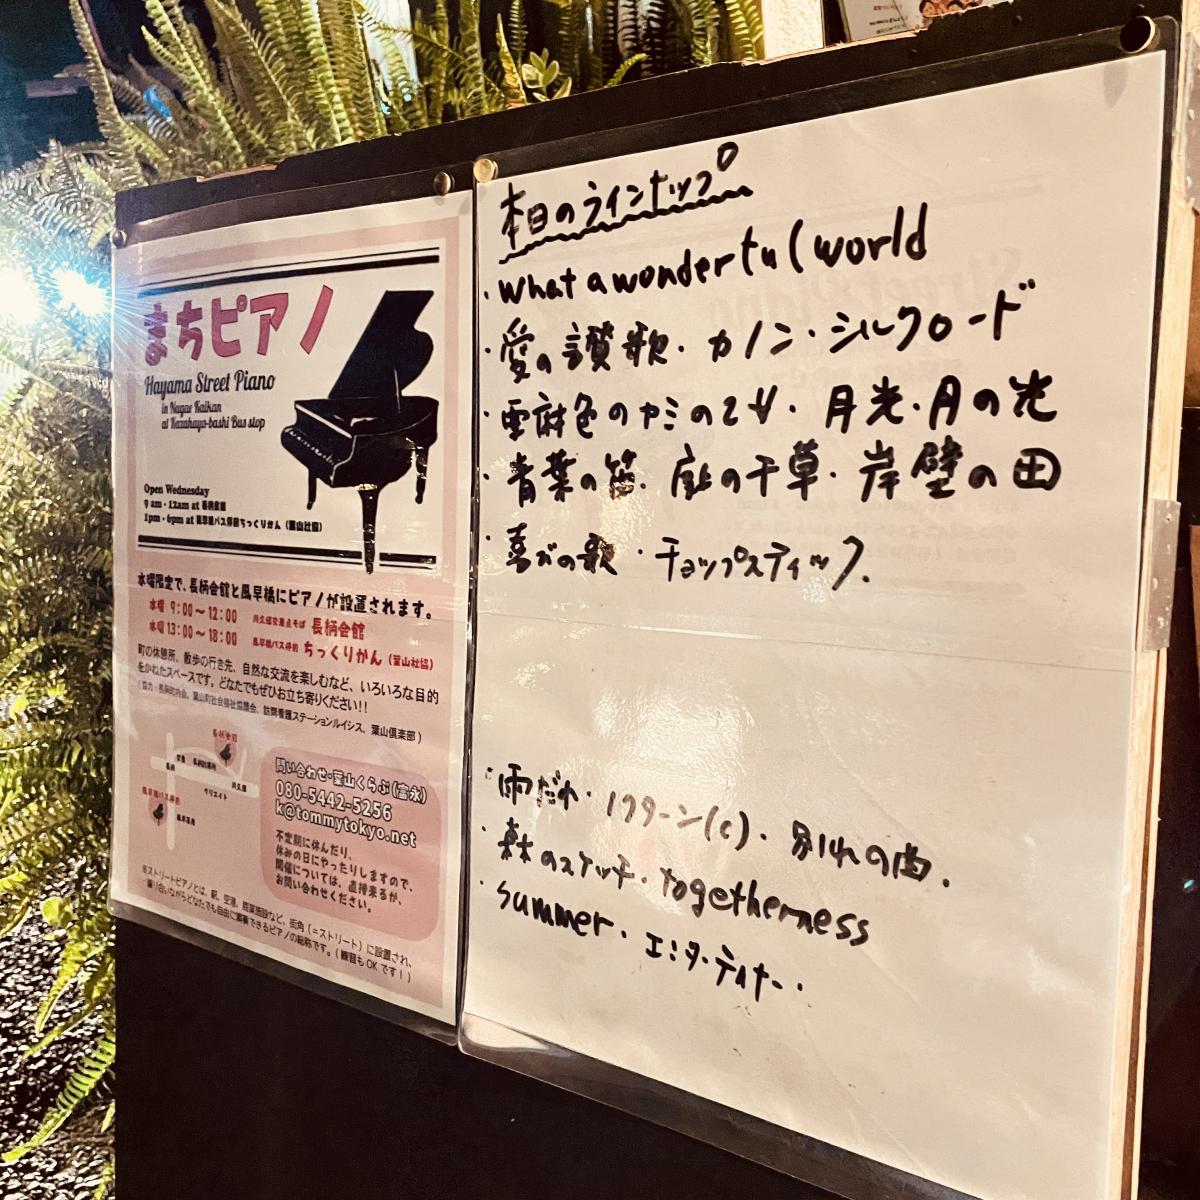 まちピアノ
Hayama Street Piano
in Nagae Kaikan
at Kazahaya-bashi Bus stop
Open Wednesday
9 am - 12am at 長柄会館
1pm - 6pm at 風早橋バス停前ちっくりかん（葉山社協）
水曜限定で、長柄会館と風早橋にピアノが設置されます。
水曜 9:00〜12:00 川久保交差点そば 長柄会館
水曜 13:00〜18:00 風早橋バス停前 ちっくりかん（葉山社協）
町の休憩所、散歩の行き先、自然な交流を楽しむなど、いろいろな目的
をかねたスペースです。どなたでもぜひお立ち寄りください!!
（協力：長柄町内会、葉山町社会福祉協議会、訪問看護ステーションルイシス、葉山倶楽部）
長柄会館
川久保
クリエイト
風早橋バス停前
問い合わせ・葉山くらぶ（富永）
080-5442-5256
k@tommytokyo.net
不定期に休んだり、
休みの日にやったりしますので、
開催については、直接来るか、
お問い合わせください。
※ストリートピアノとは、駅、空港、商業施設など、街角（=ストリート）に設置され、
譲り合いながらどなたでも自由に演奏できるピアノの総称です。（練習もOKです！）
本日のラインナップ
・What a wonderful world
・愛の讃歌・カノン・シルクロード
・亜麻色のカミの乙女・月光・月の光
・青葉の笛・庭の千草・岸壁の母
・喜びの歌・チョップスティック.
・雨だれ・ノクターン(c)・別れの曲.
・スケッチ・togetherness
・summer・エンターテイナー.